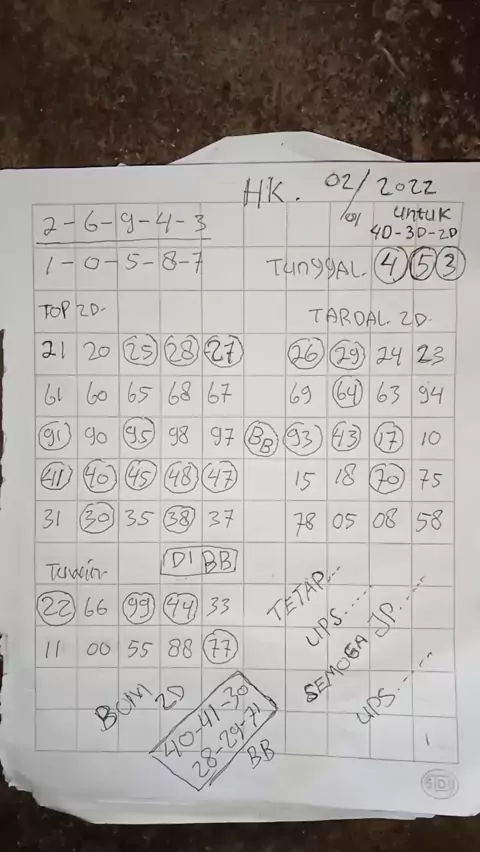 HK. 02/01/2022
2-6-9-4-3
untuk
4D-3D-2D
1-0-5-8-7
TUNGGAL. 4 5 3
TOP 2D.
TARDAL. 2D.
21 20 25 28 27 26 29 24 23
61 60 65 68 67 69 64 63 94
91 90 95 98 97 BB 93 43 17 10
41 40 45 48 47 15 18 70 75
31 30 35 38 37 78 05 08 58
DI BB
22 66 99 44 33
11 00 55 88 77
TETAP...
UPS.....
SEMOGA JP.....
UPS.....
BOM 2D
40-41-30
28-29-71
BB
1
SDU